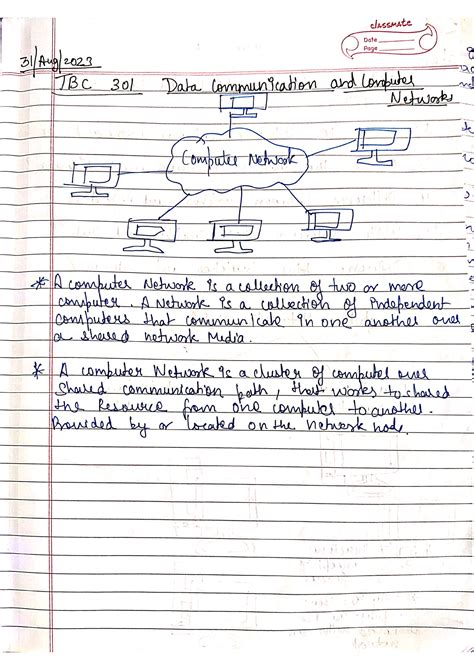 classmate
Date
Page
31/Aug/2023
TBC 301 Data Communication and Computer
Networks
Computer Network
* A computer Network is a collection of two or more
computer. A Network is a collection of Independent
computers that communicate in one another over
a shared network Media.
* A computer Network is a cluster of computer over
Shared communication path, that works to shared
the Resource from one computer to another.
Provided by or located on the network node.